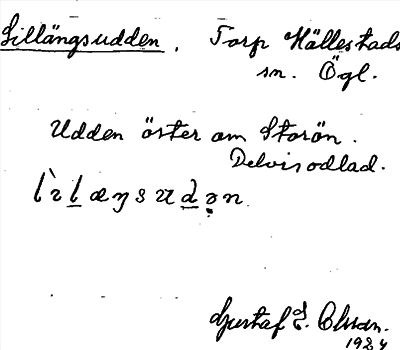 Lillängsudden. Torp Hällestads
sn. Ögl.
Udden öster om Storön.
Delvis odlad.
Gustaf E. Olsson.
1924